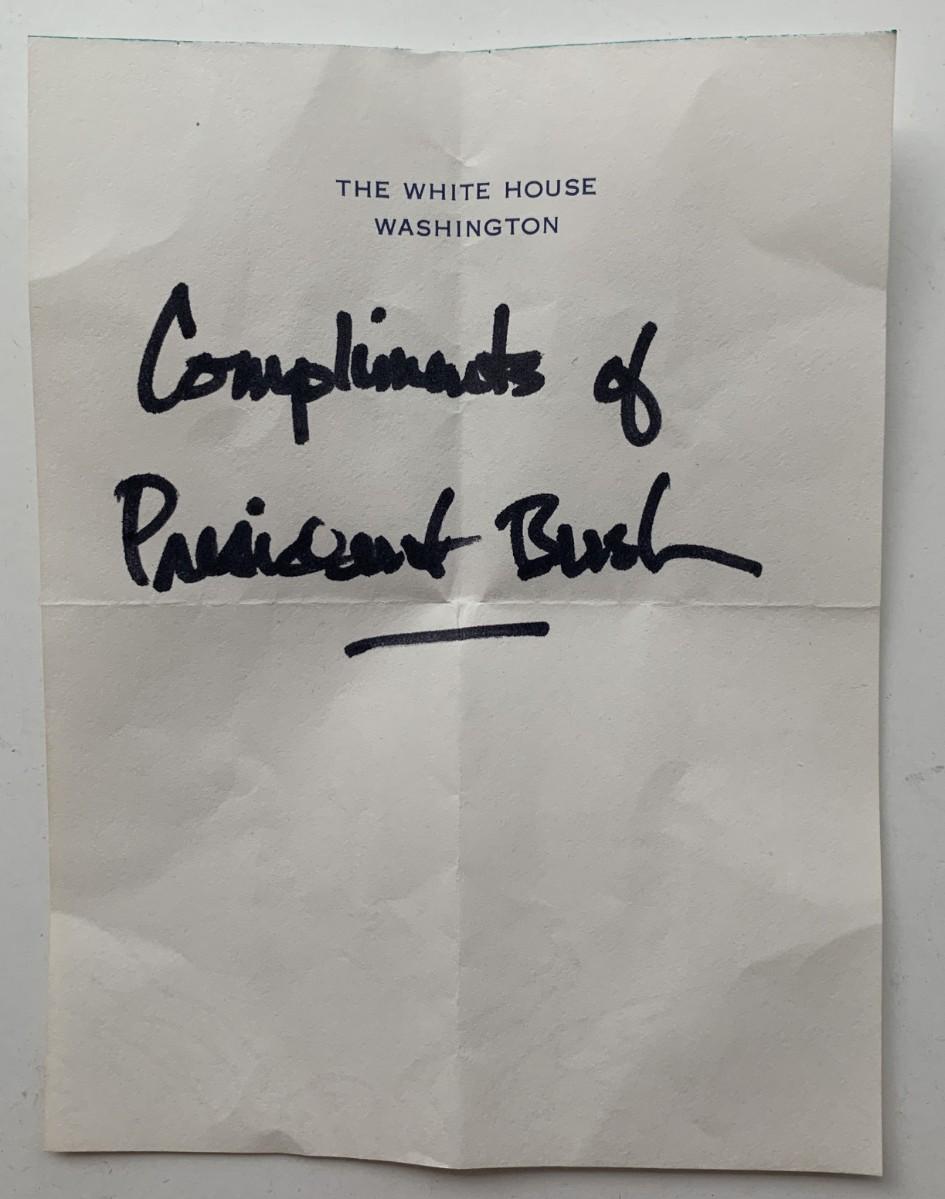 THE WHITE HOUSE
WASHINGTON
Compliments of
President Bush